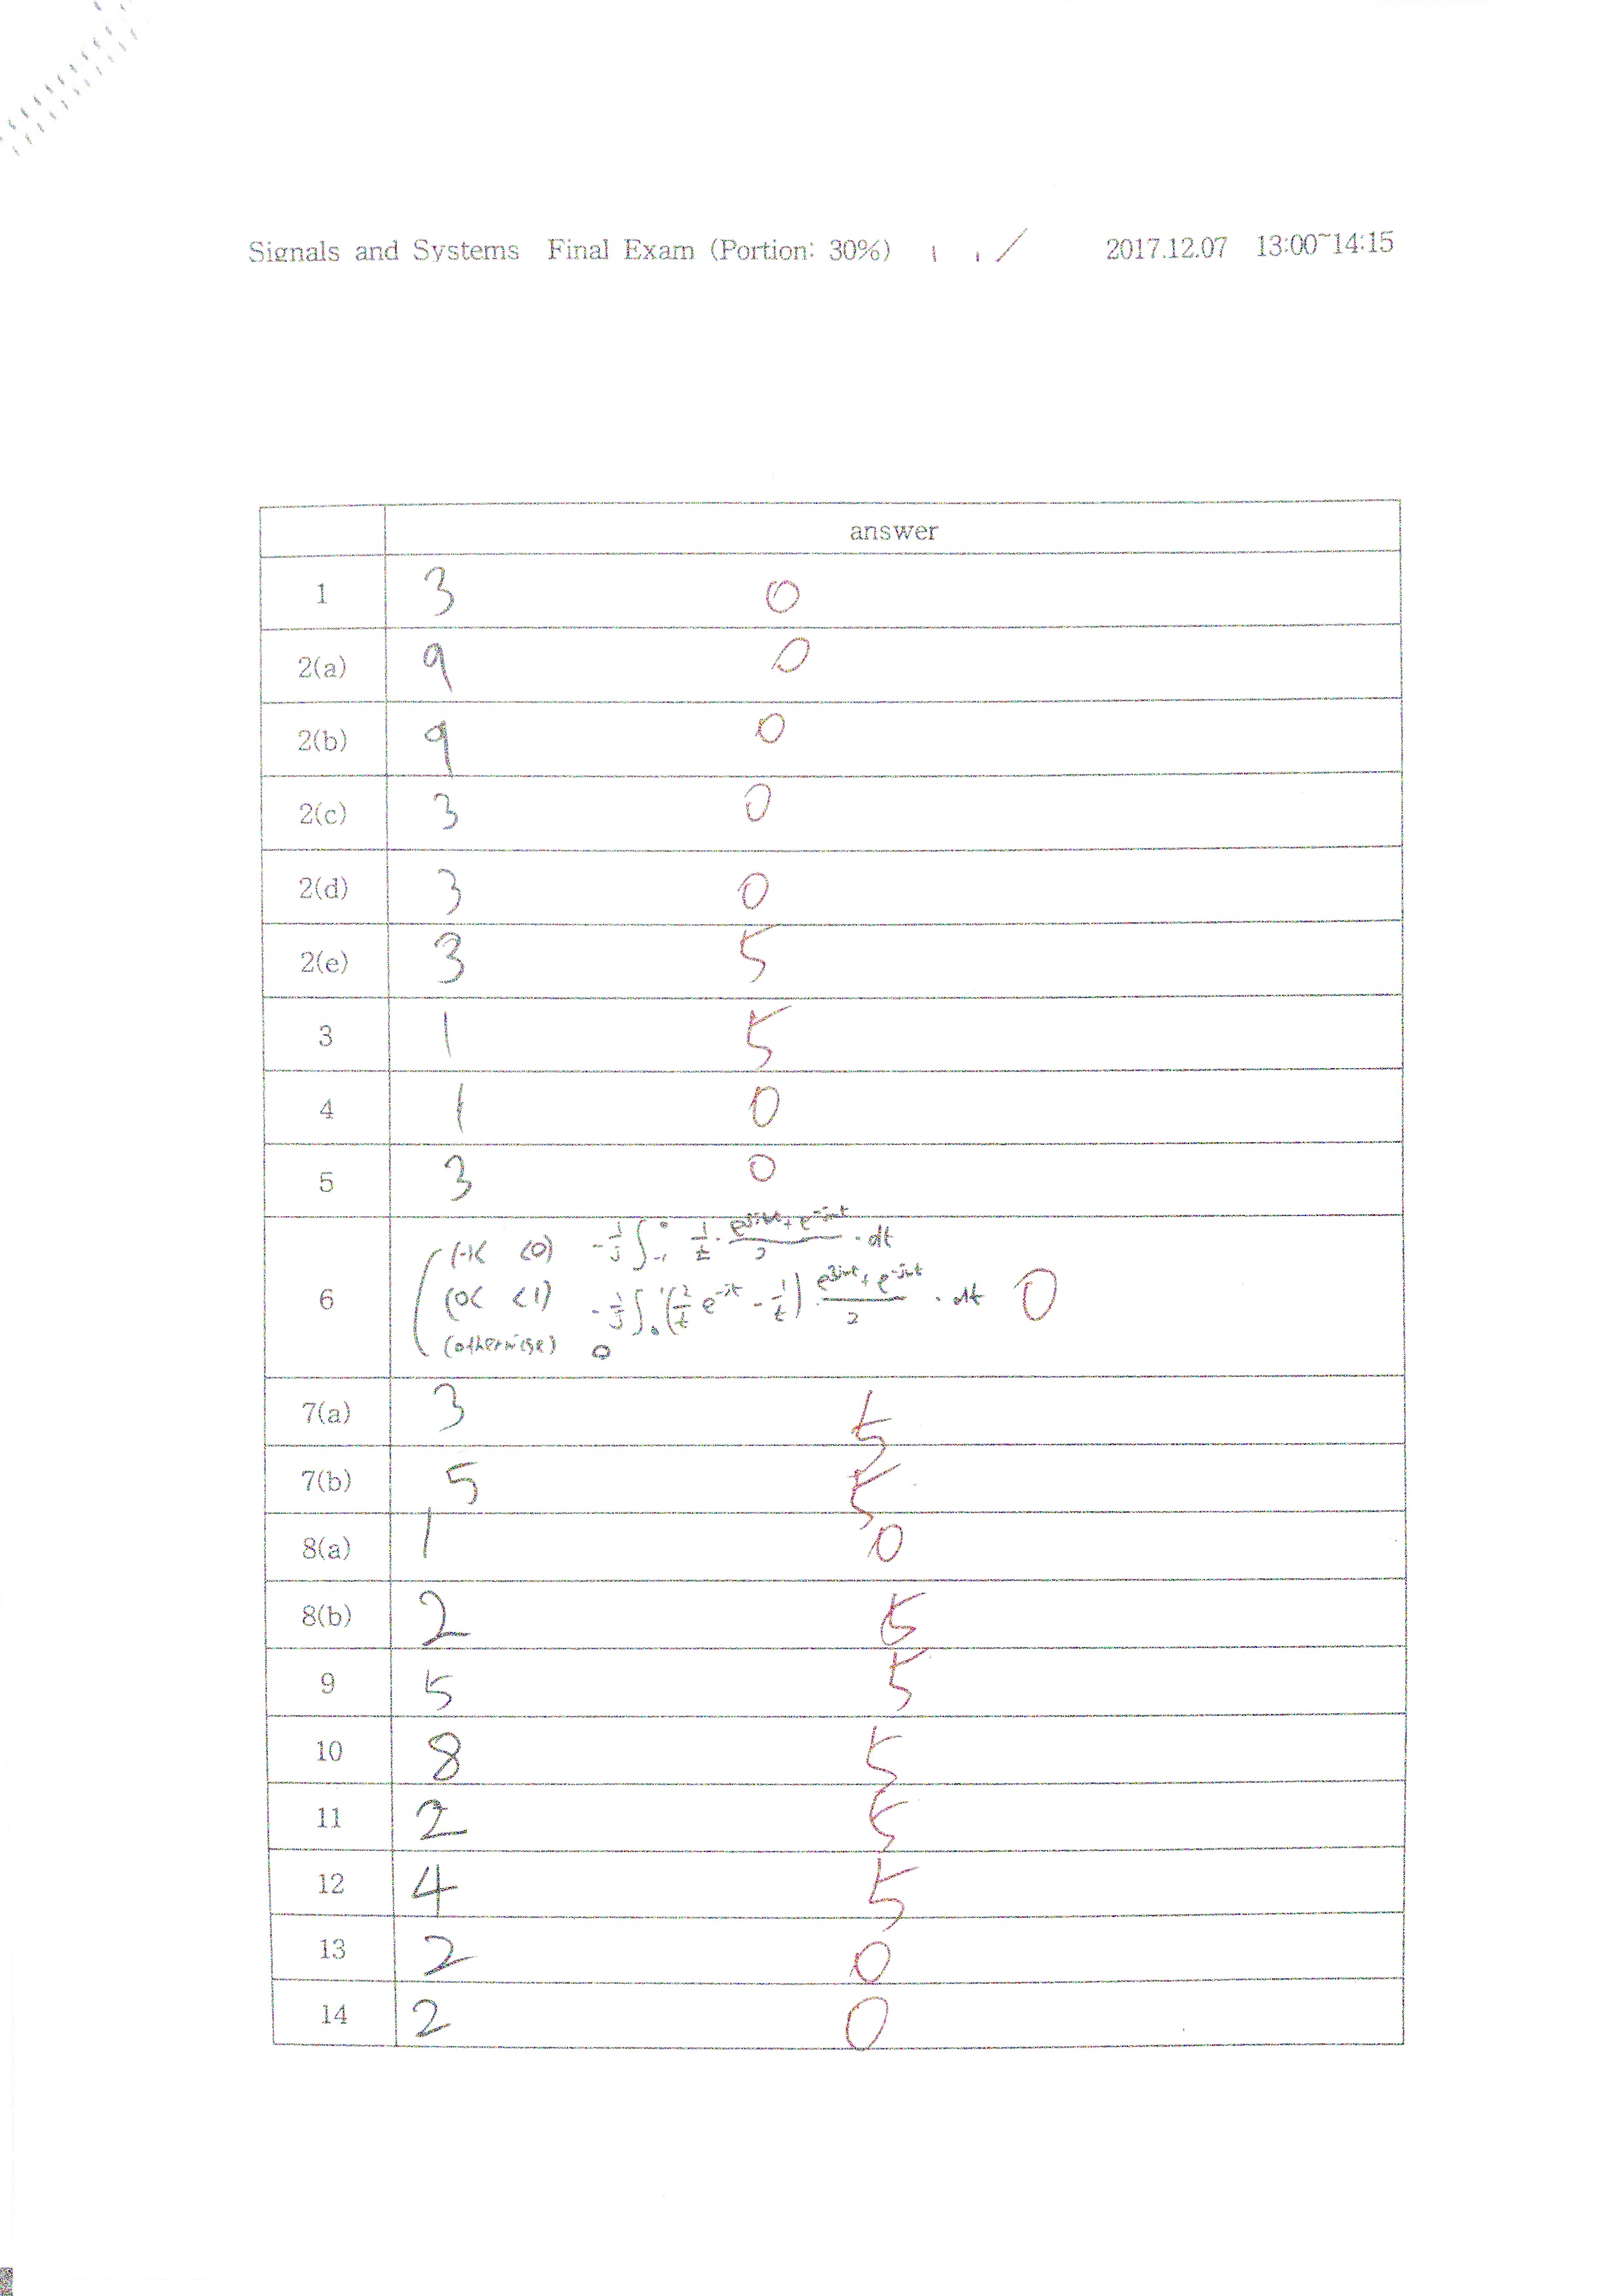 Signals and Systems Final Exam (Portion: 30%) 2017.12.07 13:00~14:15
answer
1 3 0
2(a) 9 0
2(b) 9 0
2(c) 3 0
2(d) 3 0
2(e) 3 5
3 1 5
4 1 0
5 3 0
6 (-1< <0) -1/j ∫_-1^0 1/t · (e^jωt + e^-jωt)/2 · dt
(0< <1) -1/j ∫_0^1 (2/t e^-jt - 1/t) · (e^jωt + e^-jωt)/2 · dt 0
(otherwise) 0
7(a) 3 5
7(b) 5 5
8(a) 1 0
8(b) 2 5
9 5 5
10 8 5
11 2 5
12 4 5
13 2 0
14 2 0